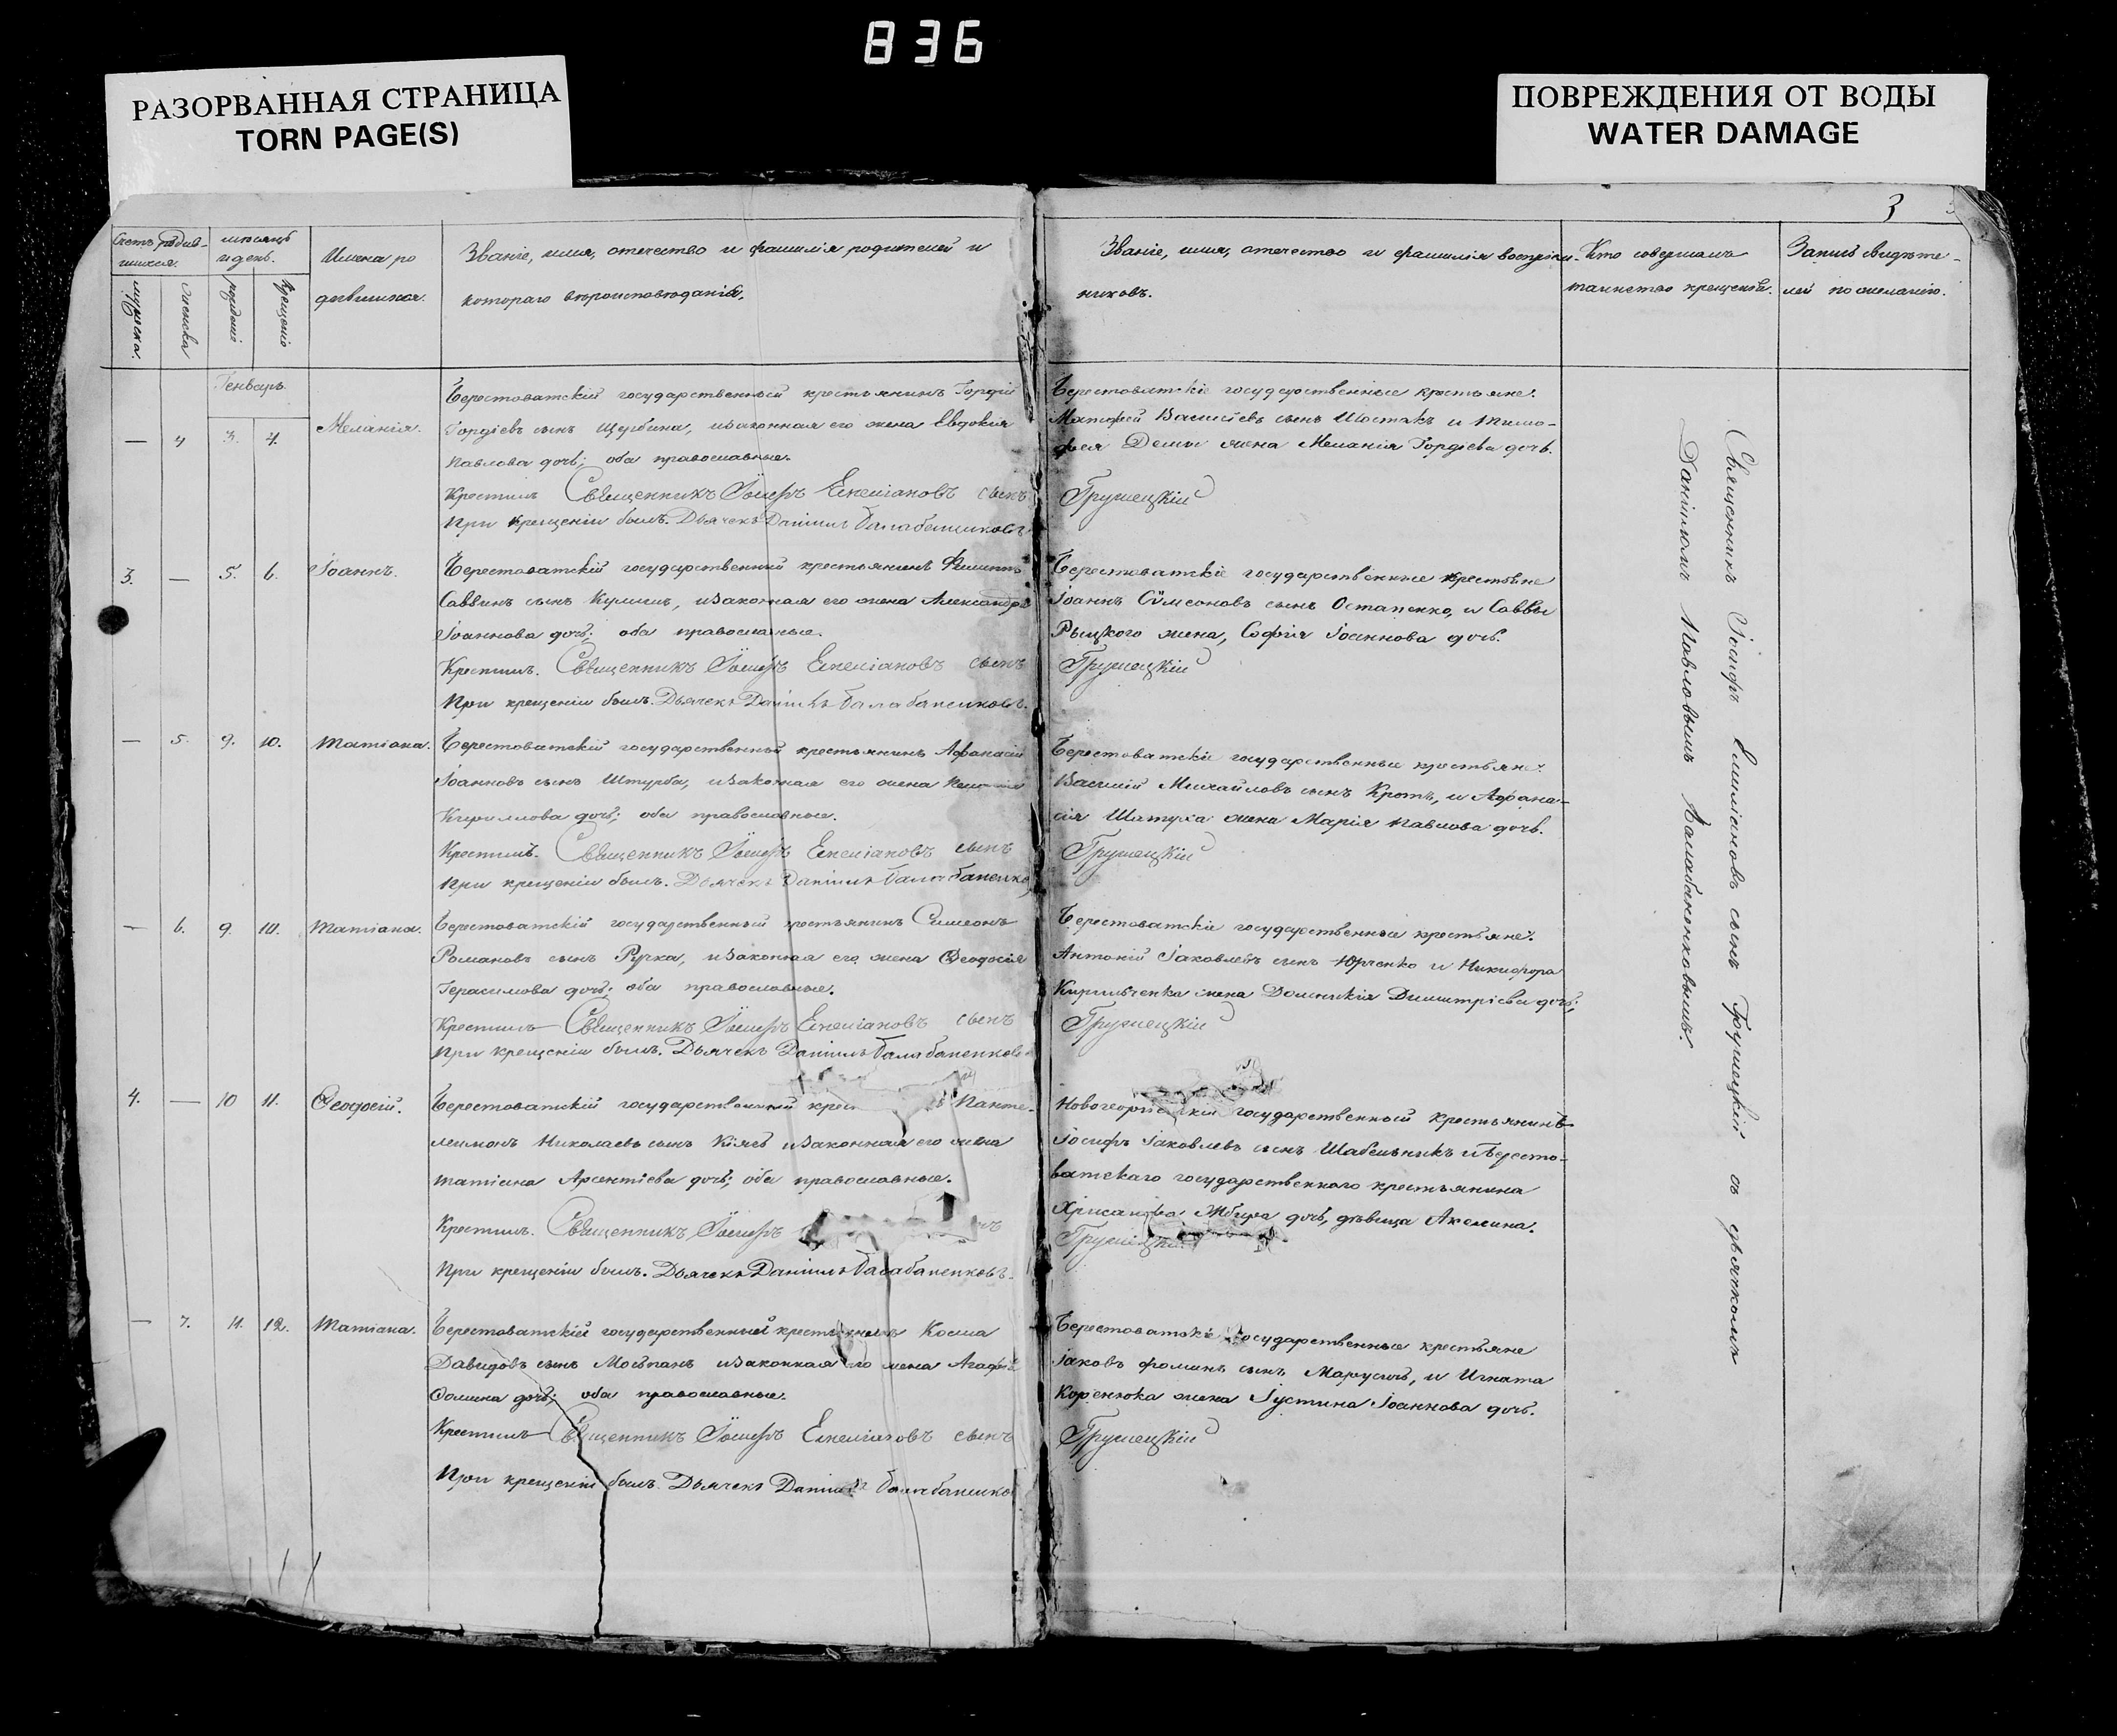 836
РАЗОРВАННАЯ СТРАНИЦА
TORN PAGE(S)
ПОВРЕЖДЕНИЯ ОТ ВОДЫ
WATER DAMAGE
3
Счетъ родив-
шихся.
мужеска.
женска
месяцъ
и день.
рожденiя
крещенiя
Имена ро
дившихся.
Званіе, имя, отечество и фамилія родителей и
котораго вѣроисповѣданія.
Званіе, имя, отечество и фамилія воспріем-
никовъ.
Кто совершалъ
таинство крещенія.
Запись свидѣте-
лей по желанію.
Генварь
— 4 3. 4. Меланія.
Берестоватскій государственный крестьянинъ Гордій
Гордіевъ сынъ Щербина, и законная его жена Евдокія
Павлова дочь; оба православные.
Крестилъ Священникъ Іосифъ Емеліановъ сынъ
При крещеніи былъ. Дьячекъ Даніилъ Балабаненковъ
Берестоватскіе государственные крестьяне:
Матфей Васильевъ сынъ Шостакъ и Тимо-
фея Демы жена Меланія Гордіева дочь.
Гружецкій
3. — 5. 6. Іоаннъ.
Берестоватскій государственный крестьянинъ Филиппъ
Саввинъ сынъ Кулишъ, и законная его жена Александра
Іоаннова дочь; оба православные.
Крестилъ. Священникъ Іосифъ Емеліановъ сынъ
При крещеніи былъ. Дьячекъ Даніилъ Балабаненковъ.
Берестоватскіе государственные крестьяне
Іоаннъ Сѵмеоновъ сынъ Остапенко, и Саввы
жена, Софія Іоаннова дочь.
Гружецкій
— 5. 9. 10. Татіана.
Берестоватскій государственный крестьянинъ Афанасій
Іоанновъ сынъ Штурба, и законная его жена
Кириллова дочь; оба православные.
Крестилъ. Священникъ Іосифъ Емеліановъ сынъ
При крещеніи былъ. Дьячекъ Даніилъ Балабаненко
Берестоватскіе государственные крестьяне:
Василій Михайловъ сынъ Кротъ, и Афана-
сія жена Марія Павлова дочь.
Гружецкій
— 6. 9. 10. Татіана.
Берестоватскій государственный крестьянинъ Симеонъ
Романовъ сынъ Ручка, и законная его жена Ѳеодосія
Герасимова дочь; оба православные.
Крестилъ Священникъ Іосифъ Емеліановъ сынъ
При крещеніи былъ. Дьячекъ Даніилъ Балабаненковъ
Берестоватскіе государственные крестьяне:
Антоній Іаковлевъ сынъ Юрченко и Никифора
Кирильченка жена Домникія Димитріева дочь;
Гружецкій
4. — 10 11. Ѳеодосій.
Берестоватскій государственный Панте-
леимонъ Николаевъ сынъ и законная его жена
Татіана Арсентіева дочь; оба православные.
Крестилъ. Священникъ Іосифъ
При крещеніи былъ. Дьячекъ Даніилъ Балабаненковъ.
государственный крестьянинъ
Іосифъ Іаковлевъ сынъ Шабельникъ и Бересто-
ватскаго государственнаго крестьянина
Хрисанфа дочь, дѣвица Акелина.
Гружецкій
— 7. 11. 12. Татіана.
Берестоватскій государственный крестьянинъ Косма
Давидовъ сынъ и законная его жена Агафія
Фомина дочь; оба православные.
Крестилъ Священникъ Іосифъ Емеліановъ сынъ
При крещеніи былъ. Дьячекъ Даніилъ Балабаненко
Берестоватскіе государственные крестьяне
Іаковъ Фоминъ сынъ и Игната
Коренюка жена Іустина Іоаннова дочь.
Гружецкій
Священникъ Іосифъ Емиліановъ сынъ Гружецкій съ дьячкомъ
Даніиломъ Павловымъ Балабаненковымъ.